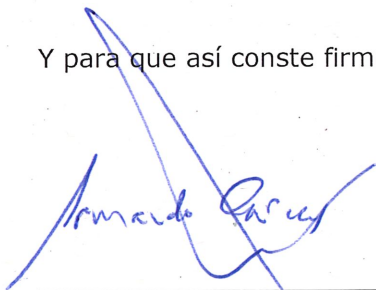 Y para que así conste firm
Armando